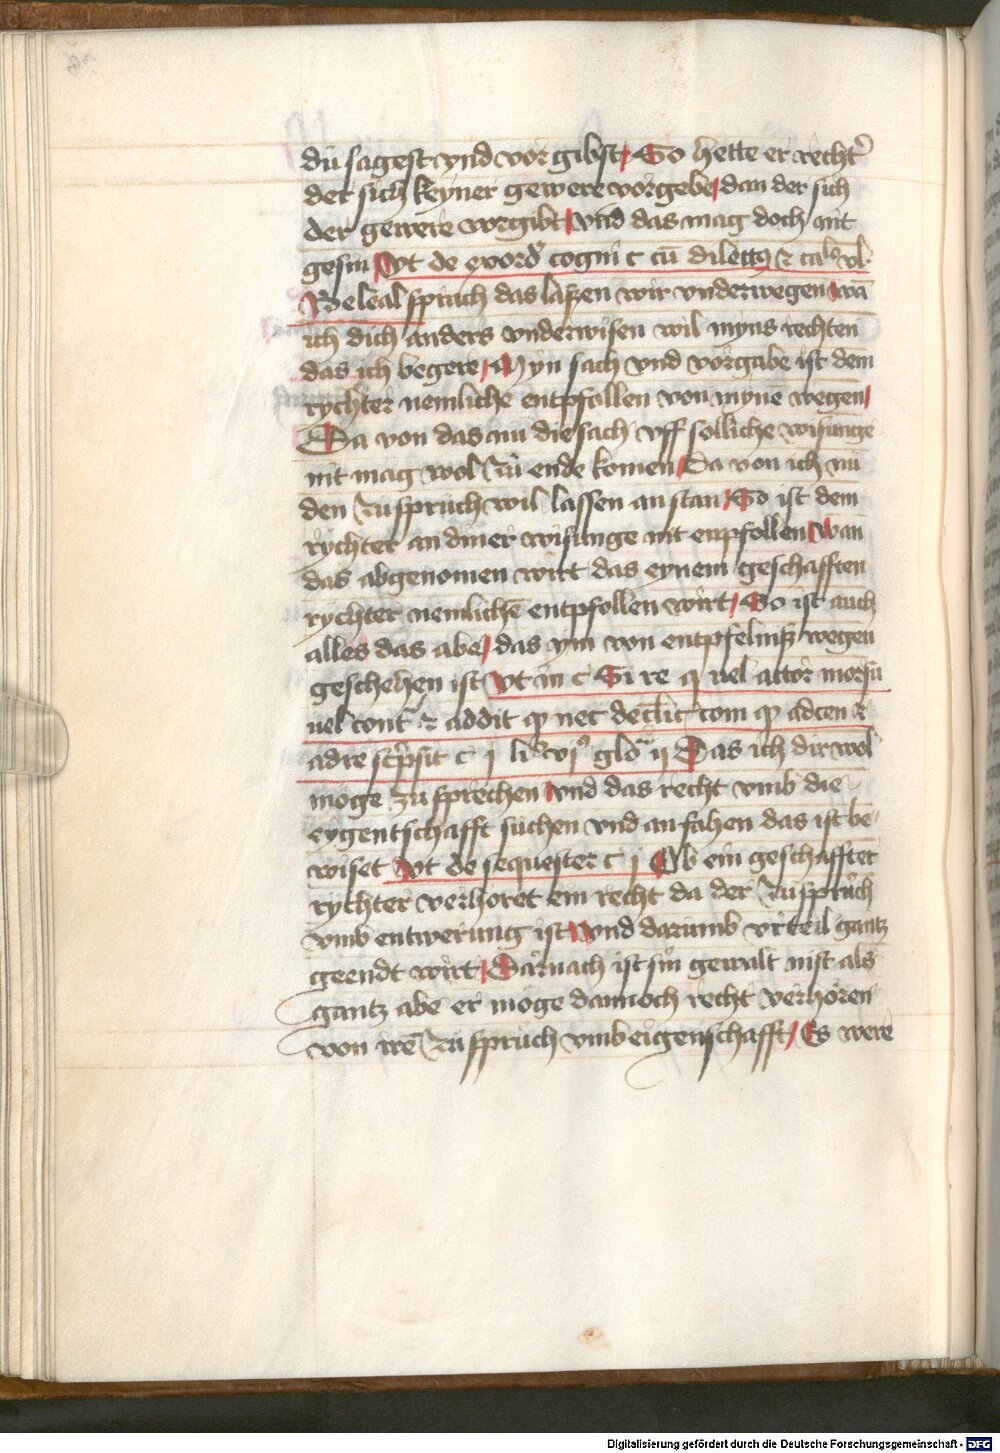 dü sagest vnd vor gibst / So hette er recht
der sich keyner gewere vorgebe / dan der sich
der gewere vorgibt / vnd das mag doch nit
gesin / Vt de exord cogni c cū dilettꝯ
Beleal sprach das laszen wir vnderwegen wā
ich dich anders vnderwisen wil myns rechten
das ich begere / Myn sach vnd vorgabe ist dem
rychter nemliche entpfollen von mynē wegen /
Da von das nü die sach vff solliche wisunge
nit mag wol zü ende komen / Da von ich nü
den züspruch wil lassen an stan / So ist dem
rychter an diner wisunge nit enpfollen / Wan
das abgenomen wirt das eynem geschafften
rychter nemlichē entpfollen wirt / So ist auch
alles das abe / das ym von entpfelnisz wegen
geschehen ist Vt in c Si re
vel cont addit
adre scpsit c j li vj glo ij Das ich dir wol
moge zü sprechen / vnd das recht vmb die
eygentschafft suchen vnd an fahen das ist be
wiset Vt de sequester c j Ob ein geschaffter
rychter verhoret ein recht da der züspruch
vmb entwerung ist / Vnd darumb vrteil gantz
geendt wirt / Darnach ist sin gewalt nist als
gantz abe er moge dannoch recht verhoren
von irē züspruch vmb eigenschafft / Es were
Digitalisierung gefördert durch die Deutsche Forschungsgemeinschaft - DFG